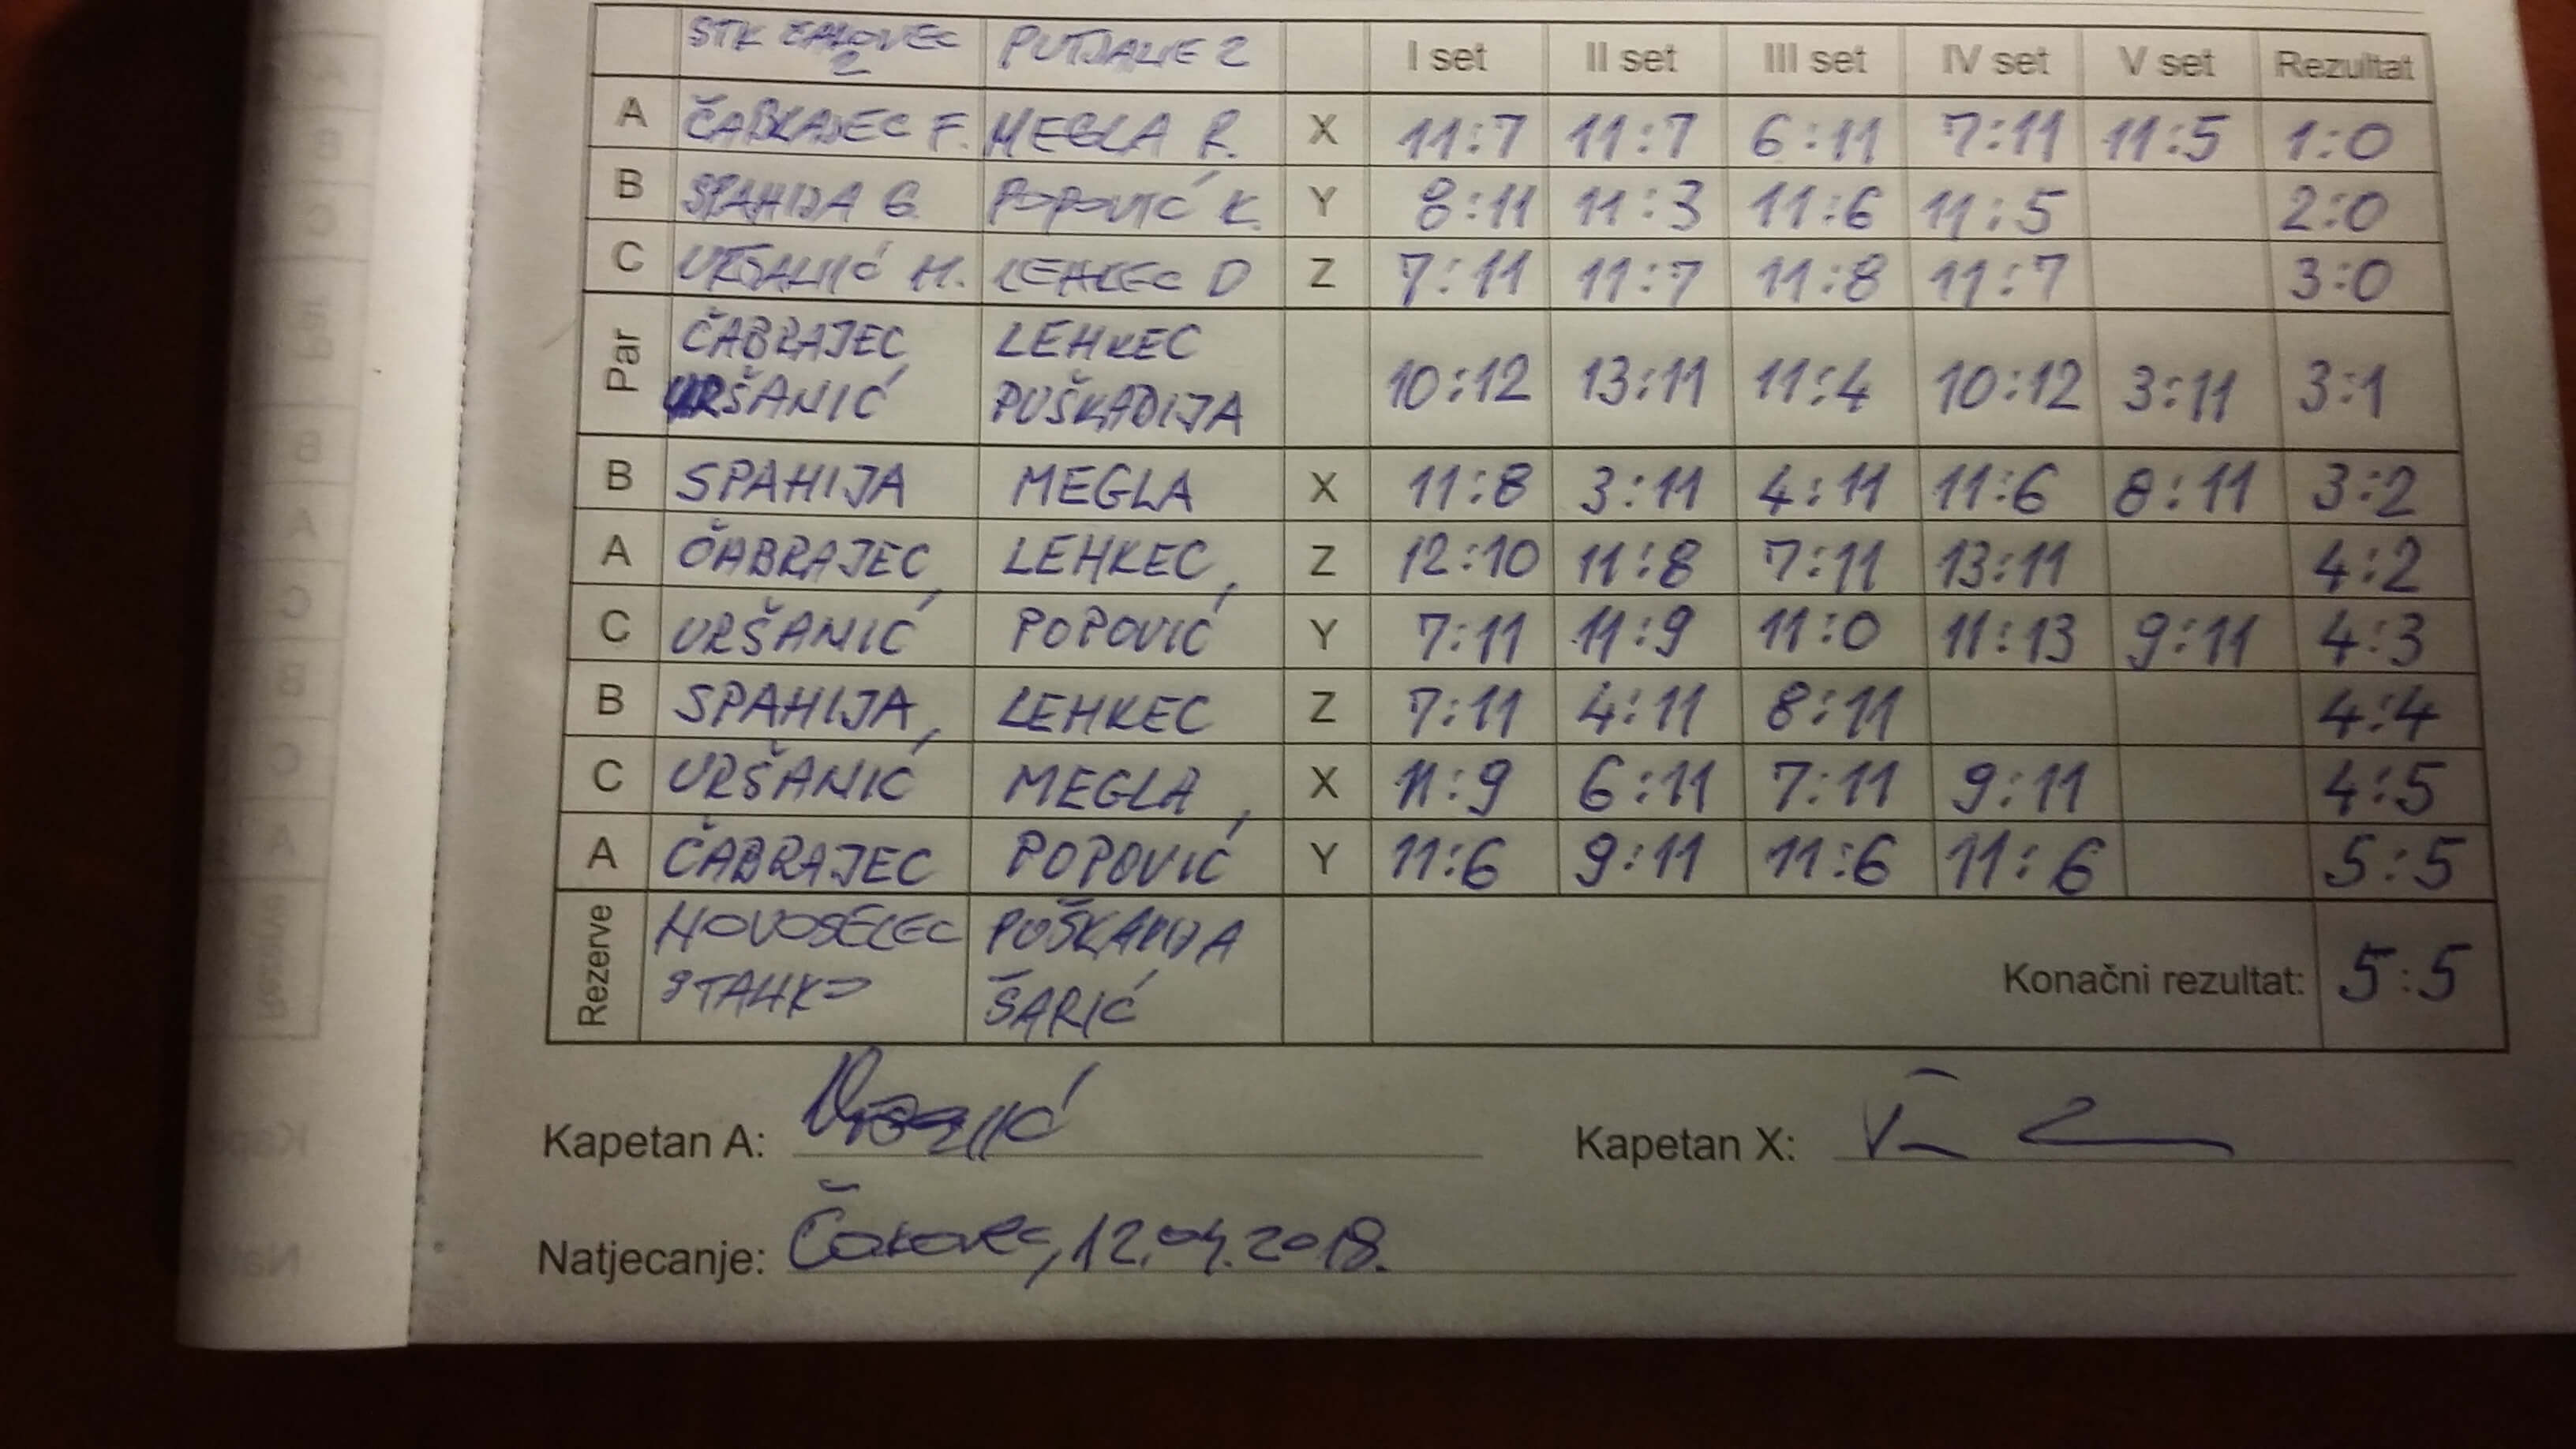 STK ČAKOVEC 2 PUTJANE 2 I set II set III set IV set V set Rezultat
A ČABRAJEC F. MEGLA R. X 11:7 11:7 6:11 7:11 11:5 1:0
B SPAHIJA G. POPOVIĆ K. Y 8:11 11:3 11:6 11:5 2:0
C URŠANIĆ M. LEHKEC D Z 7:11 11:7 11:8 11:7 3:0
Par ČABRAJEC LEHKEC 10:12 13:11 11:4 10:12 3:11 3:1
URŠANIĆ PUŠKADIJA
B SPAHIJA MEGLA X 11:8 3:11 4:11 11:6 8:11 3:2
A ČABRAJEC LEHKEC Z 12:10 11:8 7:11 13:11 4:2
C URŠANIĆ POPOVIĆ Y 7:11 11:9 11:0 11:13 9:11 4:3
B SPAHIJA LEHKEC Z 7:11 4:11 8:11 4:4
C URŠANIĆ MEGLA X 11:9 6:11 7:11 9:11 4:5
A ČABRAJEC POPOVIĆ Y 11:6 9:11 11:6 11:6 5:5
Rezerve NOVOSELEC PUŠKADIJA
STANKO ŠARIĆ
Konačni rezultat: 5:5
Kapetan A: Kapetan X:
Natjecanje: Čakovec, 12.04.2018.